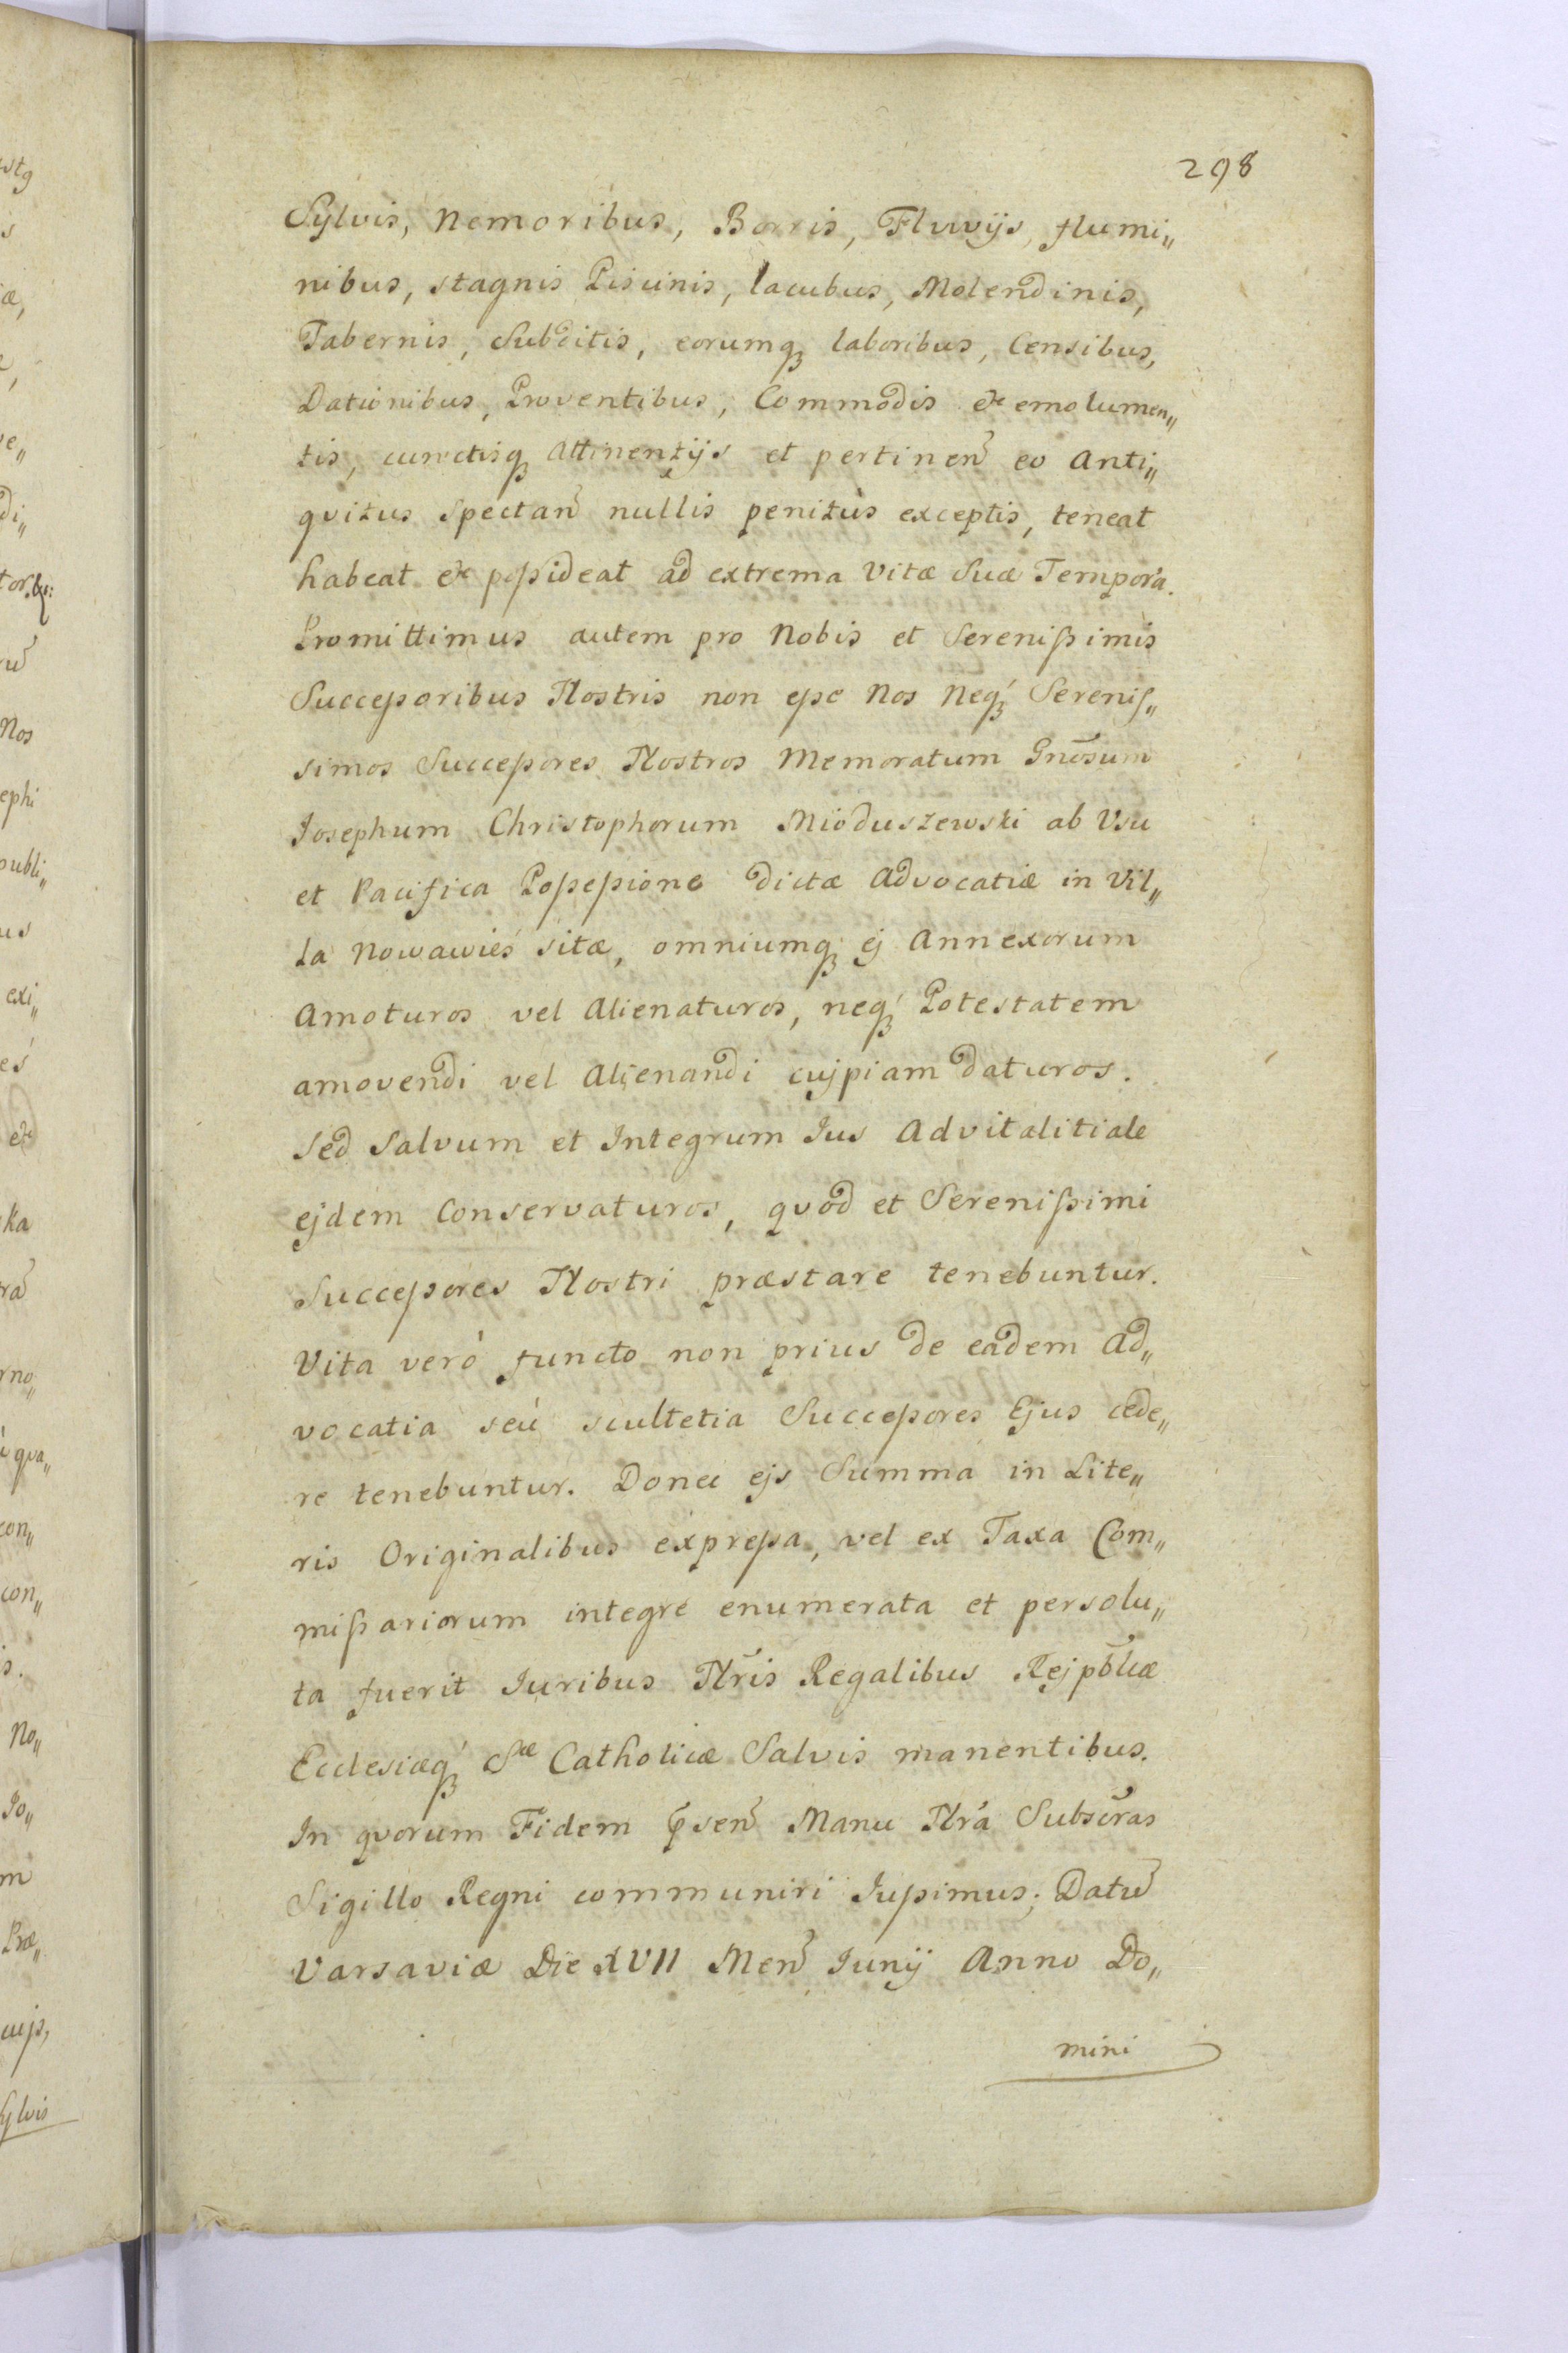 298
Sylvis, Nemoribus, Borris, Fluvijs, flumi„
nibus, stagnis Piscinis, lacubus, Molendinis,
Tabernis, Subditis, eorumq́ꝫ laboribus, Censibus,
Dationibus, Proventibus, Commodis & emolumen„
tis, cunctisqꝫ Attinentijs et pertinen̄ eo Anti„
qvitus Spectan̄ nullis penitùs exceptis, teneat
habeat & poßideat ad extrema Vitæ Suæ Tempora.
Promittimus autem pro Nobis et Serenißimis
Succeßoribus Nostris non eße Nos Neqꝫ́ Serenis„
simos Succeßores Nostros Memoratum Gnōsum
Josephum Christophorum Mioduszewski ab Vsu
et Pacifica Poßeßione dictæ Advocatiæ in Vil„
la Nowawieś sitæ, omniumqꝫ ej Annexorum
Amoturos vel Alienaturos, neqꝫ́ Potestatem
amovendi vel Alienandi cujpiam daturos.
Sed Salvum et Integrum Jus Advitalitiale
ejdem Conservaturos, qvod et Serenißimi
Succeßores Nostri præstare tenebuntur.
Vita verò functo non prius de eadem Ad„
vocatia seù scultetia Succeßores Ejus cede„
re tenebuntur. Donec ejs Summa in Lite„
ris Originalibus expreßa, vel ex Taxa Com„
mißariorum integrè enumerata et persolu„
ta fuerit Juribus Nr̄is Regalibus Rejpb̄læ
Ecclesiæqꝫ́ Sæ Catholicæ Salvis manentibus.
In qvorum Fidem p̄sen̄ Manu Nr̄a Subscr̄as
Sigillo Regni communiri Jußimus; Datū
Varsaviæ Die XVII Men̄ Junij Anno Do„
mini